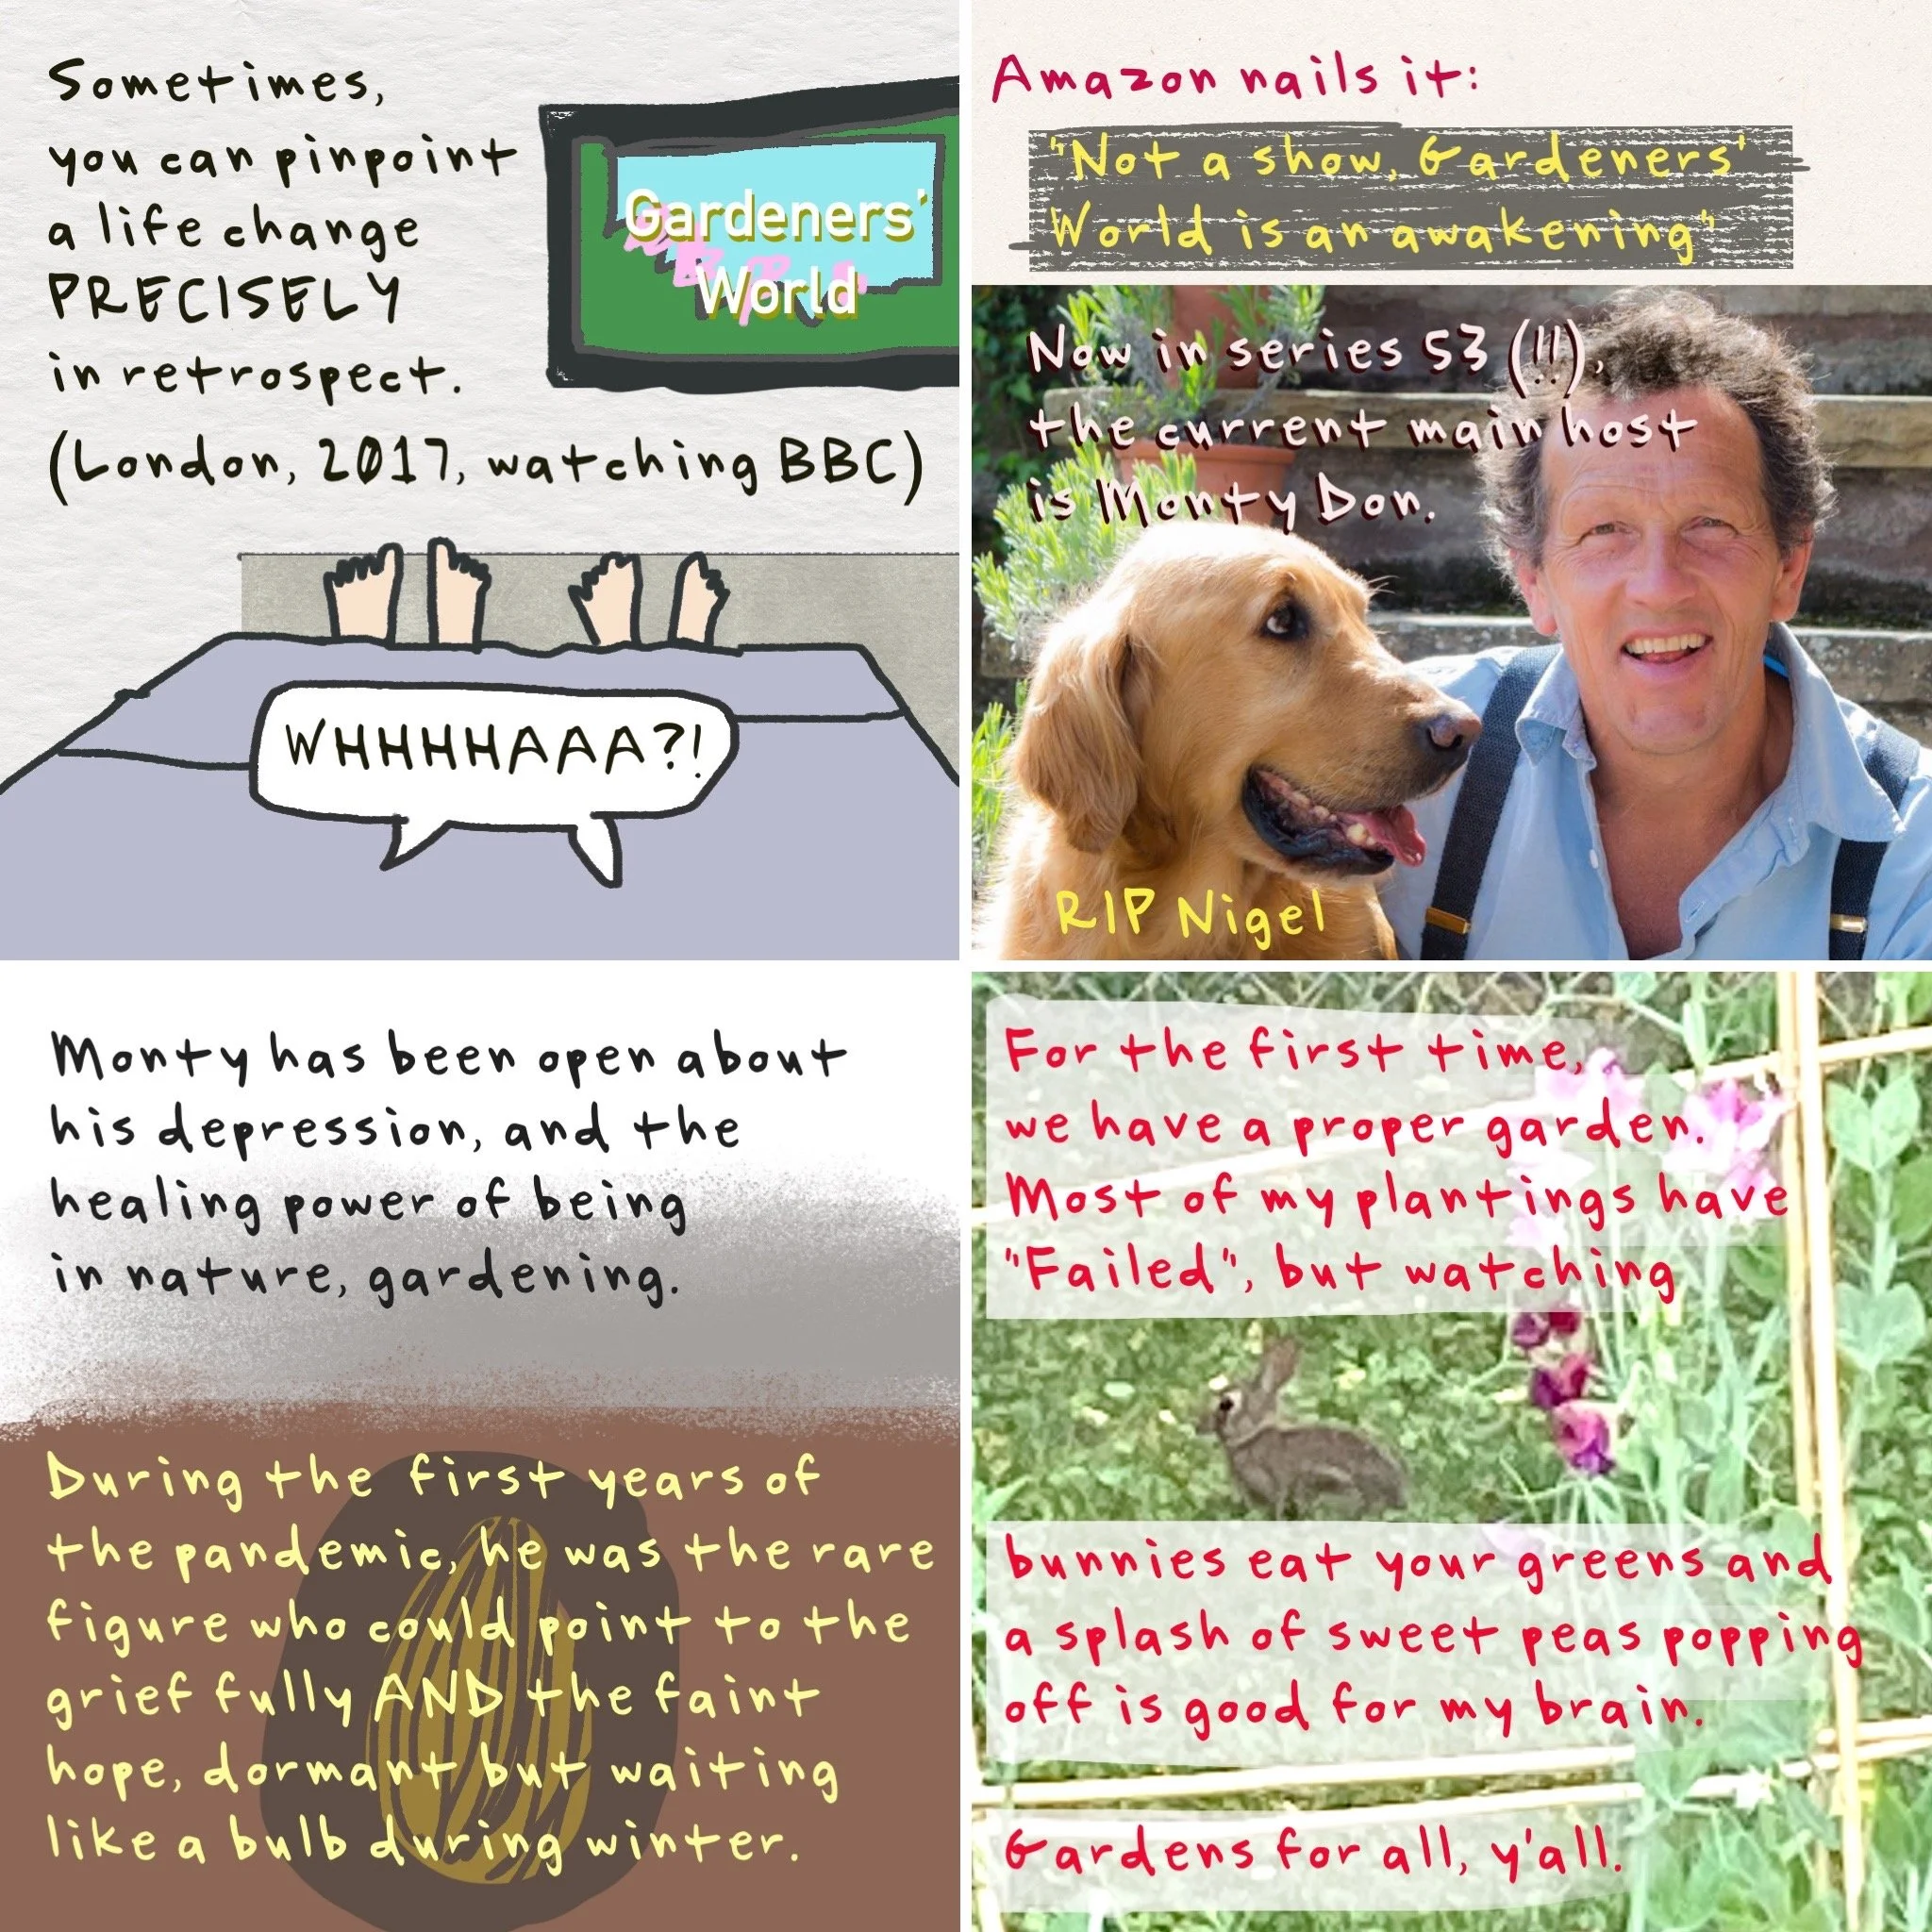 Sometimes,
you can pinpoint
a life change
PRECISELY
in retrospect.
(London, 2017, watching BBC)
Gardeners'
World
WHHHHAAA?!
Amazon nails it:
"Not a show, Gardeners'
World is an awakening"
Now in series 53 (!!),
the current main host
is Monty Don.
RIP Nigel
Monty has been open about
his depression, and the
healing power of being
in nature, gardening.
During the first years of
the pandemic, he was the rare
figure who could point to the
grief fully AND the faint
hope, dormant but waiting
like a bulb during winter.
For the first time,
we have a proper garden.
Most of my plantings have
"Failed", but watching
bunnies eat your greens and
a splash of sweet peas popping
off is good for my brain.
Gardens for all, y'all.